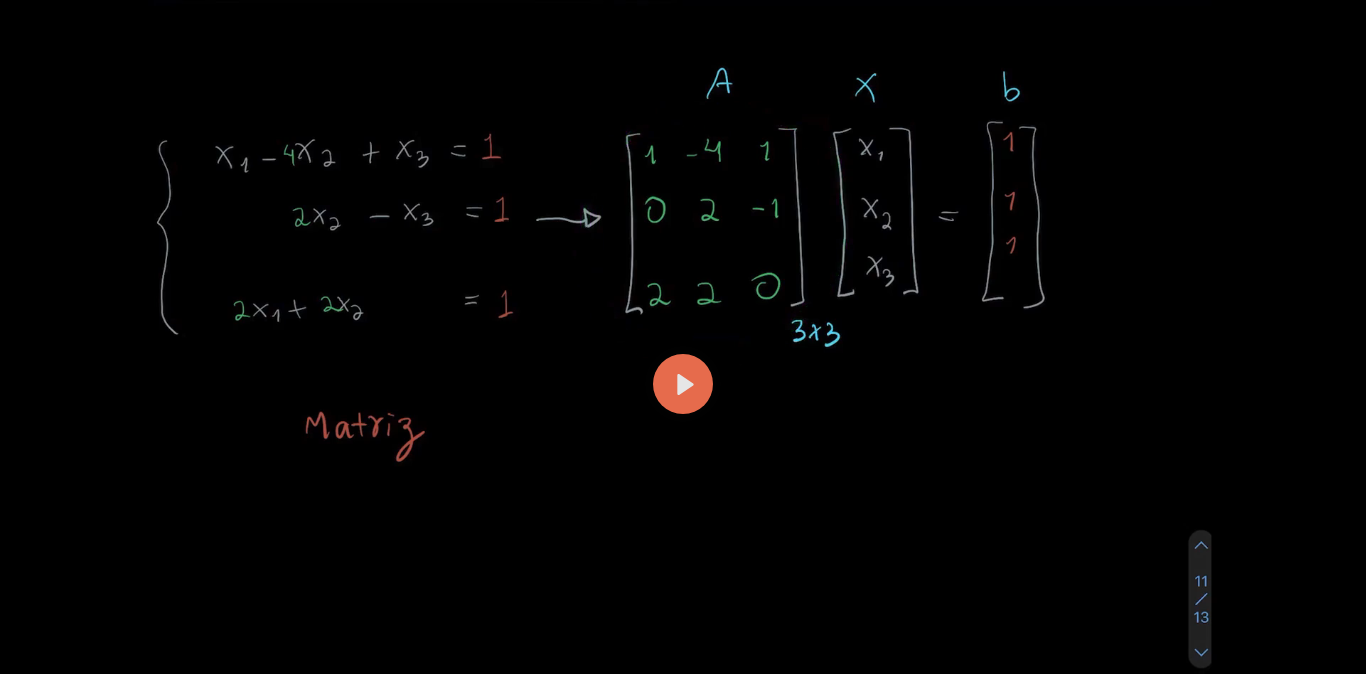 A X b
x₁ - 4x₂ + x₃ = 1
2x₂ - x₃ = 1
2x₁ + 2x₂ = 1
1 -4 1
0 2 -1
2 2 0
3x3
x₁
x₂
x₃
=
1
1
1
Matriz
11
/
13